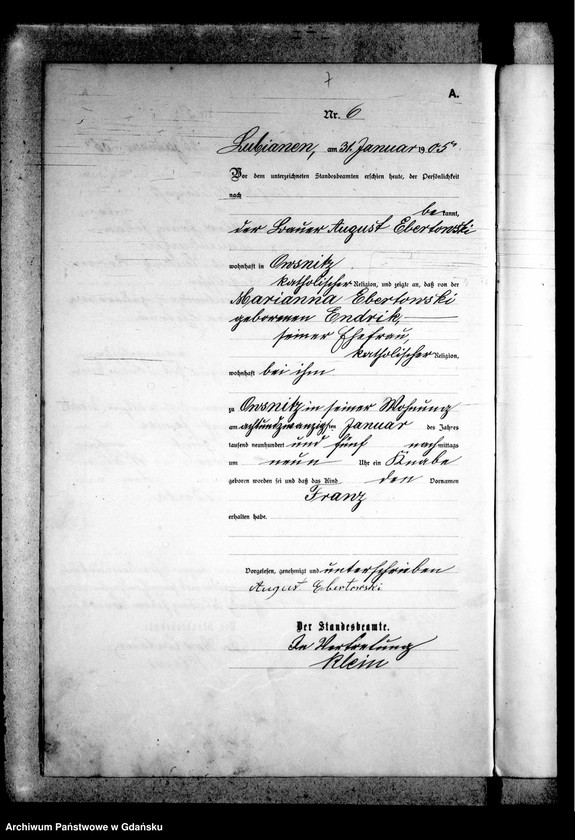 7
A.
Nr. 6
Lubianen, am 31. Januar 1905.
Vor dem unterzeichneten Standesbeamten erschien heute, der Persönlichkeit
nach
bekannt,
der Bauer August Ebertowski
wohnhaft in Owsnitz
katholischer Religion, und zeigte an, daß von der
Marianna Ebertowski
geborenen Endrik,
seiner Ehefrau,
katholischer Religion,
wohnhaft bei ihm
zu Owsnitz in seiner Wohnung
am achtundzwanzigsten Januar des Jahres
tausend neunhundert und fünf nachmittags
um neun Uhr ein Knabe
geboren worden sei und daß das Kind den Vornamen
Franz
erhalten habe.
Vorgelesen, genehmigt und unterschrieben
August Ebertowski
Der Standesbeamte.
In Vertretung
Klein
Archiwum Państwowe w Gdańsku